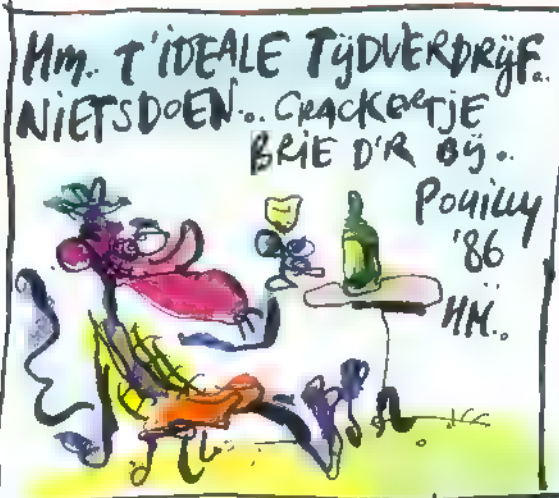 Hm.. T'IDEALE TIJDVERDRIJF..
NIETSDOEN.. CRACKERTJE
BRIE D'R BIJ..
Pouilly
'86
HM..